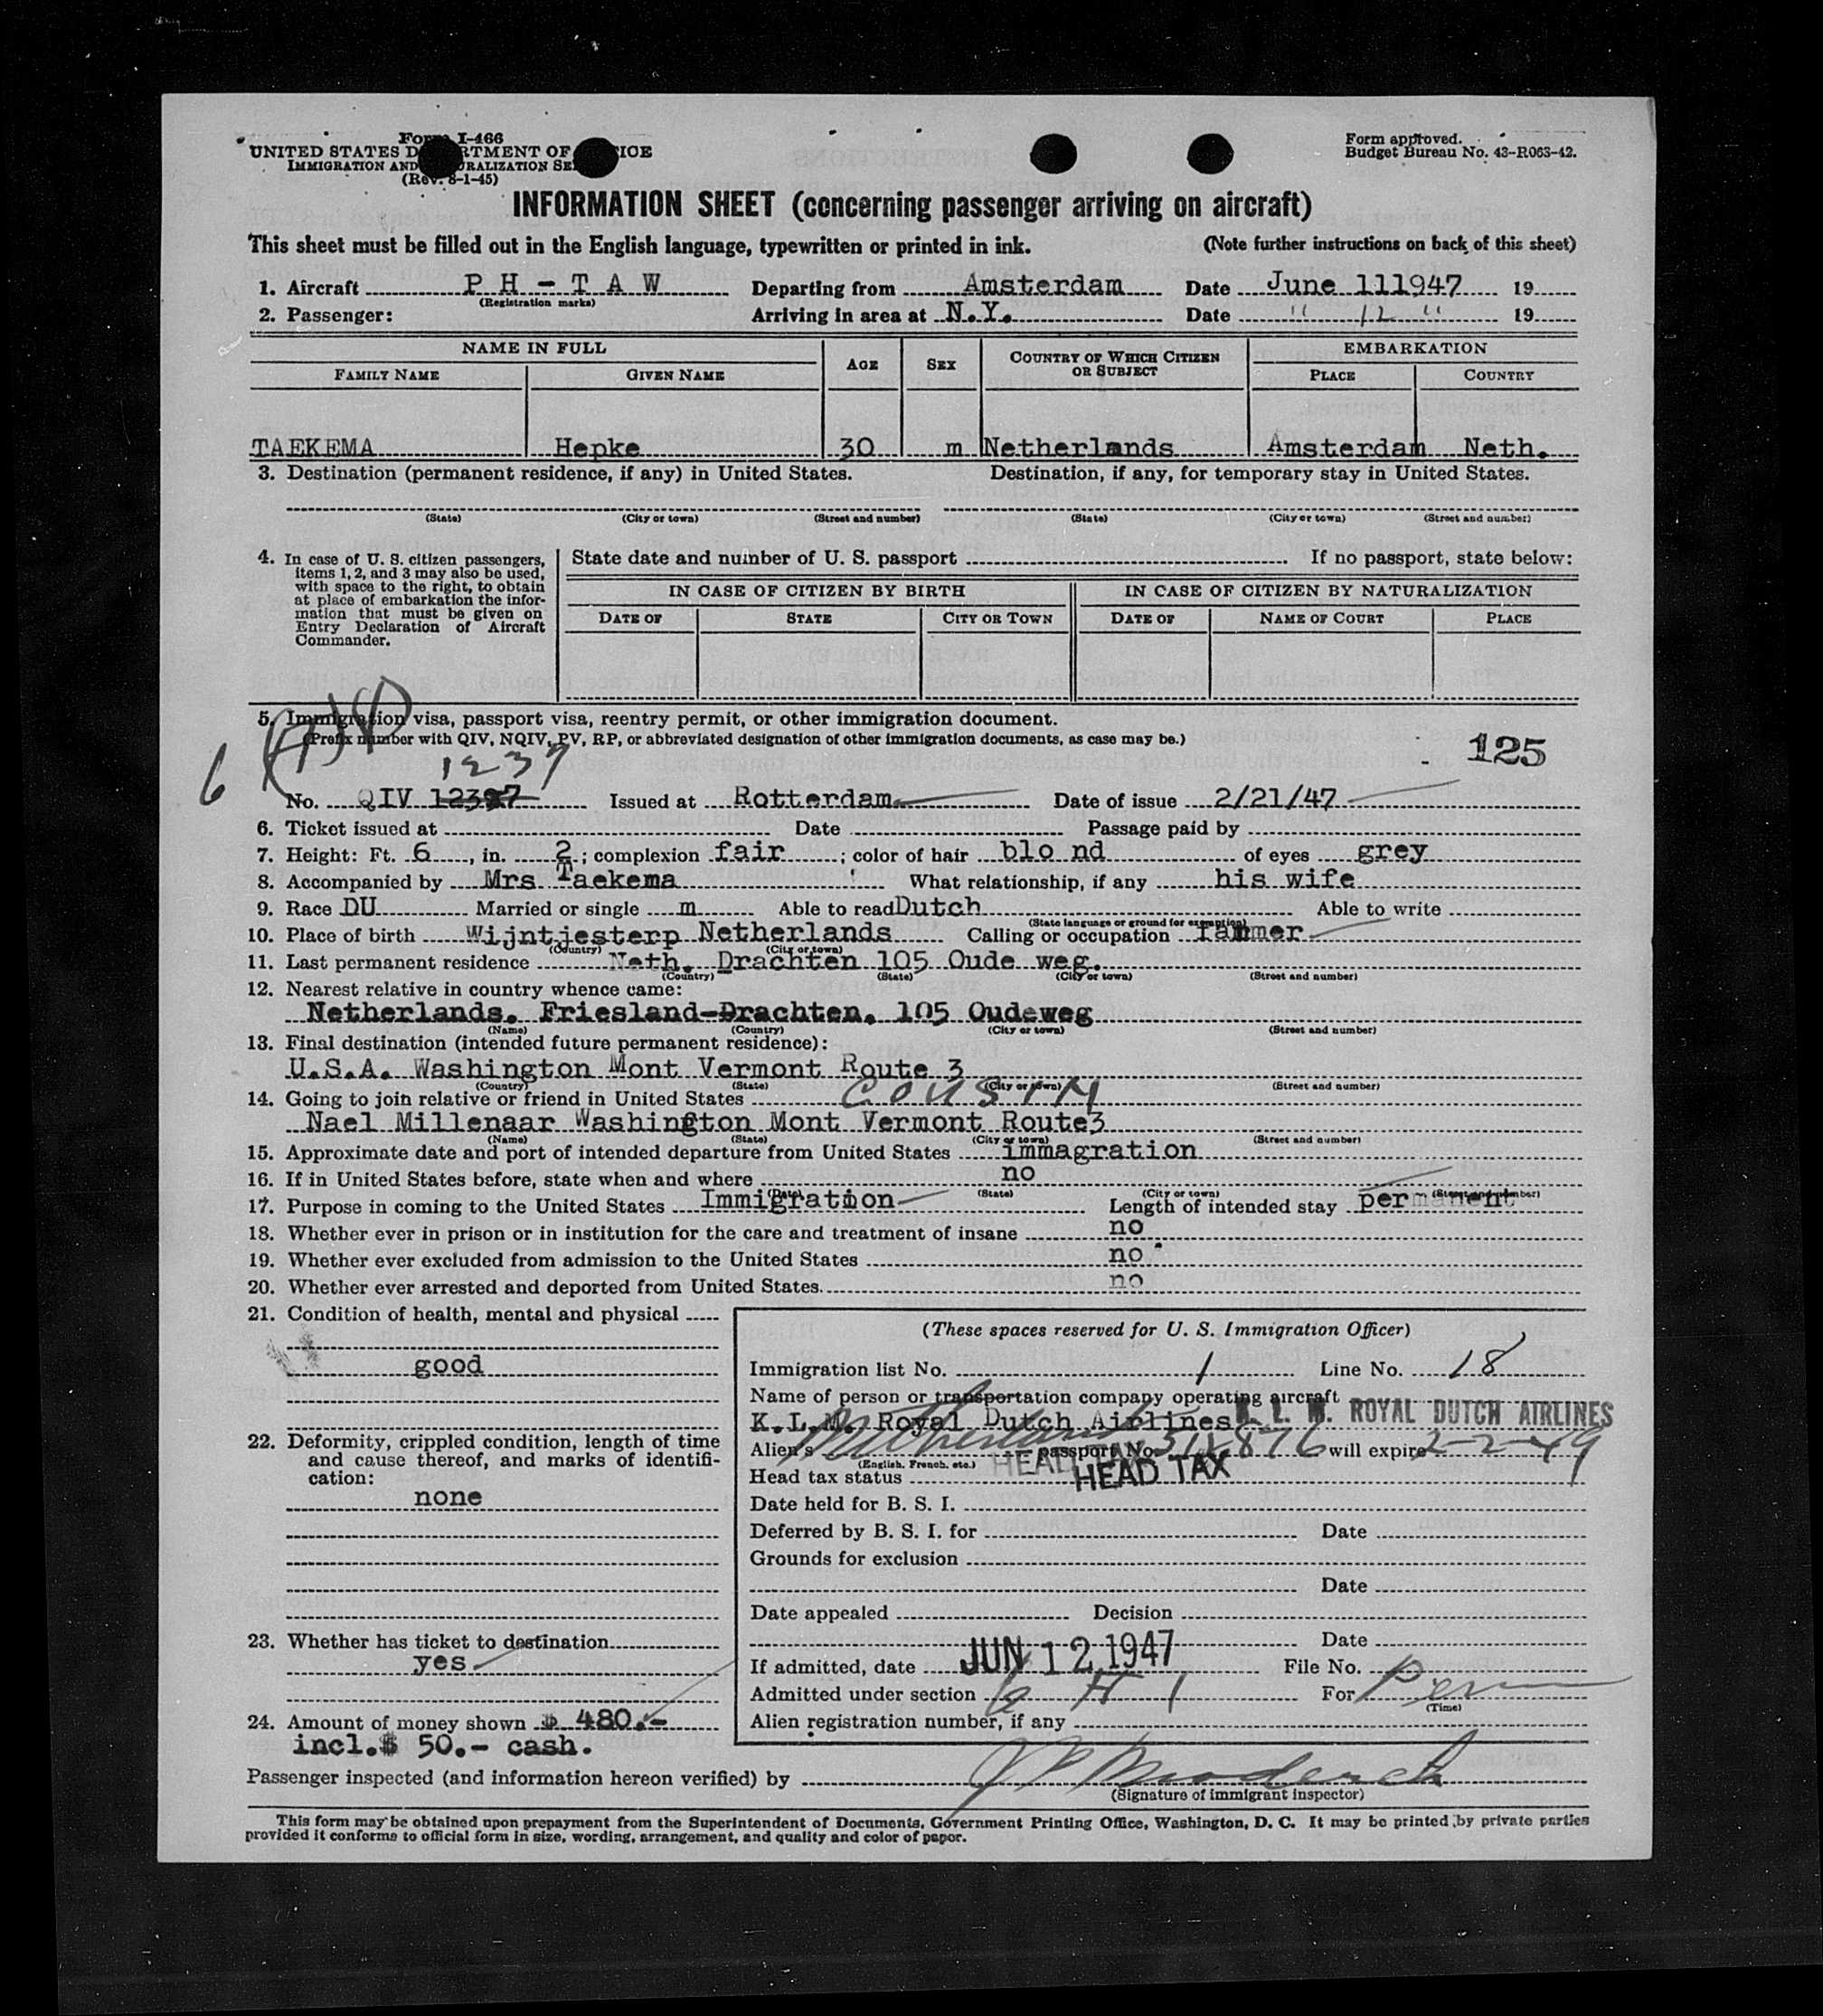 Form I-466
UNITED STATES D RTMENT OF ICE
IMMIGRATION AND RALIZATION SE
(Rev. 8-1-45)
Form approved.
Budget Bureau No. 43-R063-42.
INFORMATION SHEET (concerning passenger arriving on aircraft)
This sheet must be filled out in the English language, typewritten or printed in ink. (Note further instructions on back of this sheet)
1. Aircraft P H - T A W Departing from Amsterdam Date June 111947 19
(Registration marks)
2. Passenger: Arriving in area at N.Y. Date " 12 " 19
NAME IN FULL AGE SEX COUNTRY OF WHICH CITIZEN OR SUBJECT EMBARKATION
FAMILY NAME GIVEN NAME PLACE COUNTRY
TAEKEMA Hepke 30 m Netherlands Amsterdam Neth.
3. Destination (permanent residence, if any) in United States. Destination, if any, for temporary stay in United States.
(State) (City or town) (Street and number) (State) (City or town) (Street and number)
4. In case of U. S. citizen passengers,
items 1, 2, and 3 may also be used,
with space to the right, to obtain
at place of embarkation the infor-
mation that must be given on
Entry Declaration of Aircraft
Commander.
State date and number of U. S. passport If no passport, state below:
IN CASE OF CITIZEN BY BIRTH IN CASE OF CITIZEN BY NATURALIZATION
DATE OF STATE CITY OR TOWN DATE OF NAME OF COURT PLACE
5. Immigration visa, passport visa, reentry permit, or other immigration document.
(Prefix number with QIV, NQIV, PV, RP, or abbreviated designation of other immigration documents, as case may be.)
125
6
1237
No. QIV 12327 Issued at Rotterdam Date of issue 2/21/47
6. Ticket issued at Date Passage paid by
7. Height: Ft. 6, in. 2; complexion fair; color of hair blo nd of eyes grey
8. Accompanied by Mrs Taekema What relationship, if any his wife
9. Race DU Married or single m Able to read Dutch Able to write
(State language or ground for exemption)
10. Place of birth Wijntjesterp Netherlands Calling or occupation
(Country) (City or town)
11. Last permanent residence Neth. Drachten 105 Oude weg.
(Country) (State) (City or town) (Street and number)
12. Nearest relative in country whence came:
Netherlands. Friesland-Drachten. 105 Oudeweg
(Name) (Country) (City or town) (Street and number)
13. Final destination (intended future permanent residence):
U.S.A. Washington Mont Vermont Route 3
(Country) (State) (City or town) (Street and number)
14. Going to join relative or friend in United States COUSIN
Nael Millenaar Washington Mont Vermont Route3
(Name) (State) (City or town) (Street and number)
15. Approximate date and port of intended departure from United States immagration
16. If in United States before, state when and where no
(Date) (State) (City or town) (Street and number)
17. Purpose in coming to the United States Immigration Length of intended stay permanent
18. Whether ever in prison or in institution for the care and treatment of insane no
19. Whether ever excluded from admission to the United States no
20. Whether ever arrested and deported from United States. no
21. Condition of health, mental and physical
good
22. Deformity, crippled condition, length of time
and cause thereof, and marks of identifi-
cation:
none
23. Whether has ticket to destination
yes
24. Amount of money shown $ 480.-
incl.$ 50.- cash.
(These spaces reserved for U. S. Immigration Officer)
Immigration list No. 1 Line No. 18
Name of person or transportation company operating aircraft
K.L.M. Royal Dutch Airlines K. L. M. ROYAL DUTCH AIRLINES
Alien's Netherlands passport No. will expire 2-2-49
(English, French, etc.)
Head tax status HEAD TAX HEAD TAX
Date held for B. S. I.
Deferred by B. S. I. for Date
Grounds for exclusion
Date
Date appealed Decision
Date
If admitted, date JUN 12 1947 File No.
Admitted under section 6 A 1 For Perm
(Time)
Alien registration number, if any
Passenger inspected (and information hereon verified) by
(Signature of immigrant inspector)
This form may be obtained upon prepayment from the Superintendent of Documents, Government Printing Office, Washington, D. C. It may be printed by private parties
provided it conforms to official form in size, wording, arrangement, and quality and color of paper.